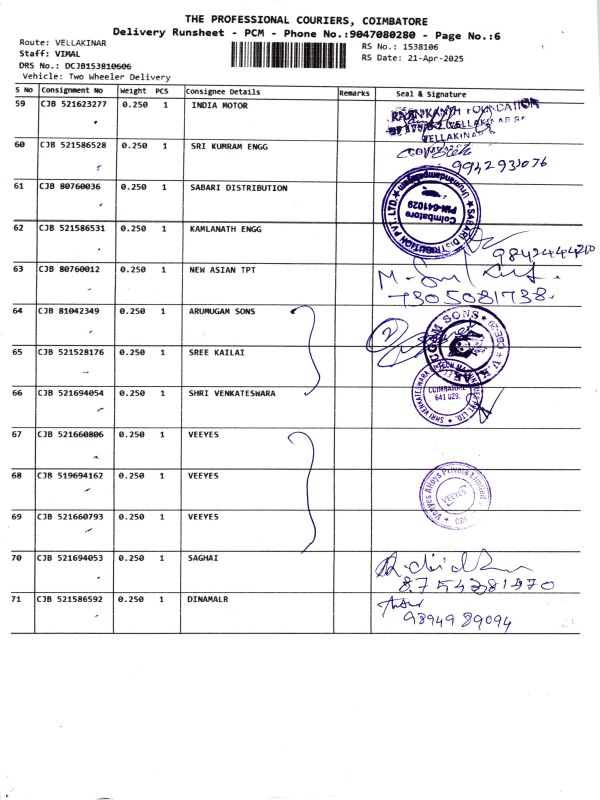 THE PROFESSIONAL COURIERS, COIMBATORE
Delivery Runsheet - PCM - Phone No.:9047080280 - Page No.:6
Route: VELLAKINAR
Staff: VIMAL
DRS No.: DCJB153810606
Vehicle: Two Wheeler Delivery
RS No.: 1538106
RS Date: 21-Apr-2025
S No Consignment No Weight PCS Consignee Details Remarks Seal & Signature
59 CJB 521623277 0.250 1 INDIA MOTOR
VELLAKINAR
60 CJB 521586528 0.250 1 SRI KUMRAM ENGG
9942931076
61 CJB 80760036 0.250 1 SABARI DISTRIBUTION
SABARI DISTRIBUTION PVT. LTD.
Coimbatore
PIN-641029
62 CJB 521586531 0.250 1 KAMLANATH ENGG
9842444210
63 CJB 80760012 0.250 1 NEW ASIAN TPT
7305081738
64 CJB 81042349 0.250 1 ARUMUGAM SONS
65 CJB 521528176 0.250 1 SREE KAILAI
66 CJB 521694054 0.250 1 SHRI VENKATESWARA
COIMBATORE
641 029.
67 CJB 521660806 0.250 1 VEEYES
68 CJB 519694162 0.250 1 VEEYES
Veeyes Alloys Private Limited
VEEYES
CBE
69 CJB 521660793 0.250 1 VEEYES
70 CJB 521694053 0.250 1 SAGHAI
8754381970
71 CJB 521586592 0.250 1 DINAMALR
98949 89094